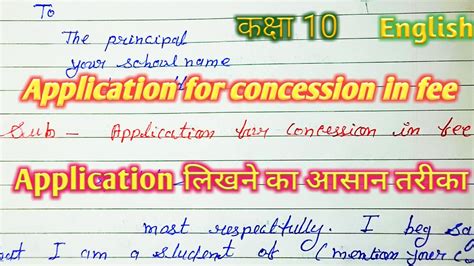 To
कक्षा 10 English
The principal
your school name
Application for concession in fee
Sub - Application for concession in fee
Application लिखने का आसान तरीका
most respectfully. I beg
I am a student of (mention your